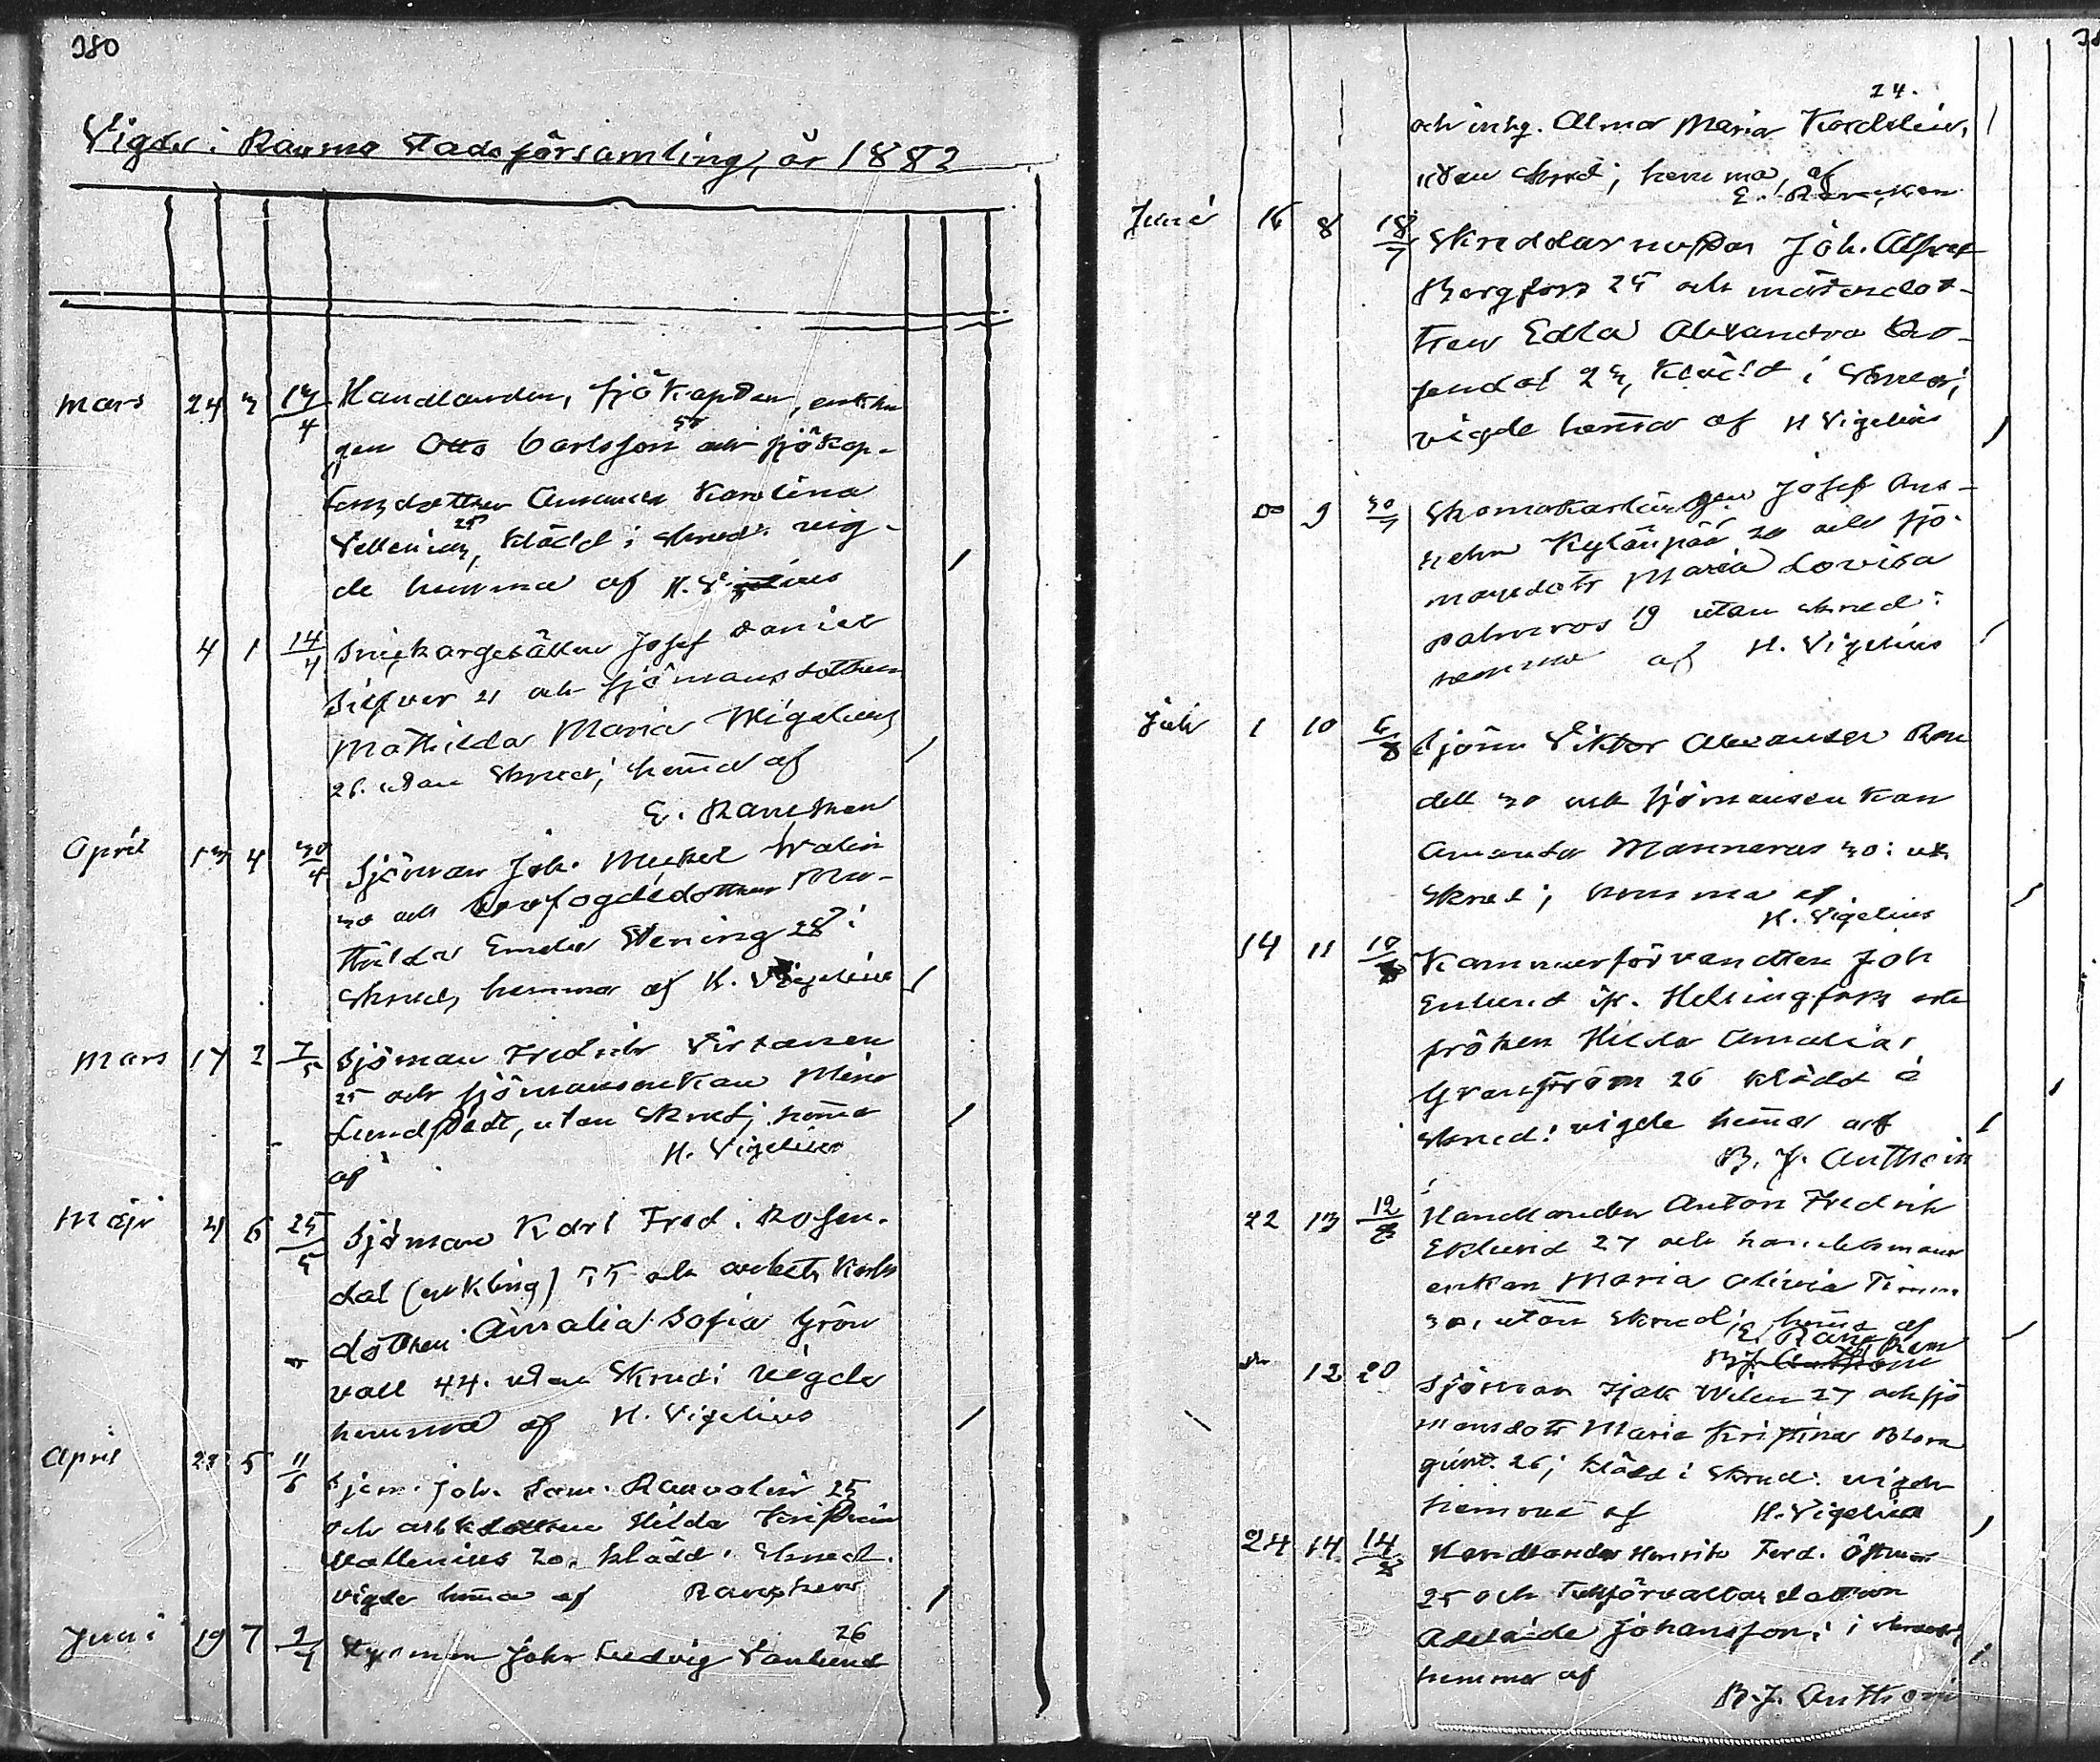 380
Vigde i Raumo Stadsförsamling, år 1882
Mars 24 3 13/4 Handlanden, sjökapten, enklin
gen Otto Carlsson 55 och sjökap-
tensdottren Amanda Karolina
25, klädd i skrud: vig-
de hemma af H. Vigelius
4 1 14/4 Snickargesällen Josef Daniel
Silfver 21 och sjömansdottren
Mathilda Maria Wigelius
26. utan skrud; hemma af
E. Rancken
April 13 4 30/4 Sjöman Joh. Mickel Walin
30 och dottren Ma-
thilda Emelia Stening 28:
skrud, hemma af H. Vigelius
Mars 17 2 7/5 Sjöman Fredrik Virtanen
25 och sjömansenkan Mina
Lundstedt, utan skrud; hemma
af H. Vigelius
Maji 4 6 25/5 Sjöman Karl Fred. Rosen-
dal (enkling) 55 och arbets karls
dottren Amalia Sofia Grön
vall 44. utan skrud: vigde
hemma af H. Vigelius
April 28 5 11/6 Sjöm. Joh. Sam. Rauvalin 25
och arbk dottren Hilda Kristina
Vallenius 20. klädd i skrud.
vigde hemma af Rancken
Juni 19 7 2/7 Styrman John Ludvig Vanlund 26
24.
och inhg. Alma Maria Nordstein,
utan skrud; hemma, af
E. Rancken
Juni 16 8 18/7 Skreddar Joh. Alfred
Bergfors 25 och
tren Edla Alexandra Ro-
sendal 23, klädd i skrud;
vigde hemma af H Vigelius
Do 9 30/7 Skomakarlärgen Josef Ans-
helm Kylänpää 20 och sjö-
mansdotr Maria Lovisa
Palmros 19 utan skrud:
hemma af H. Vigelius
Juli 1 10 6/8 Sjöm Viktor Alexander Ren
dell 30 och sjömansenkan
Amanda Mannerus 30: utan
skrud; hemma af
H. Vigelius
14 11 10/8 Kammarförvandten Joh
Enlund ifr. Helsingfors och
fröken Hilda Amalia
Granström 26 klädd i
skrud: vigde hemma af
B. J. Anthoni
22 13 12/8 Handlanden Anton Fredrik
Eklund 27 och handelsmans
enkan Maria Olivia Timm
30, utan skrud; hemma af
E. Rancken
B.J. Anthoni
do 12 20 Sjöman Isak Wilen 27 och sjö
mansdotr Maria Kristina Blom
qvist. 26; klädd i skrud: vigde
hemma af H. Vigelius
24 14 14/8 Handlanden Henrik Ferd. Östman
25 och Tullförvaltardottren
Adelaide Johansson; i skrud;
hemma af
B. J. Anthoni